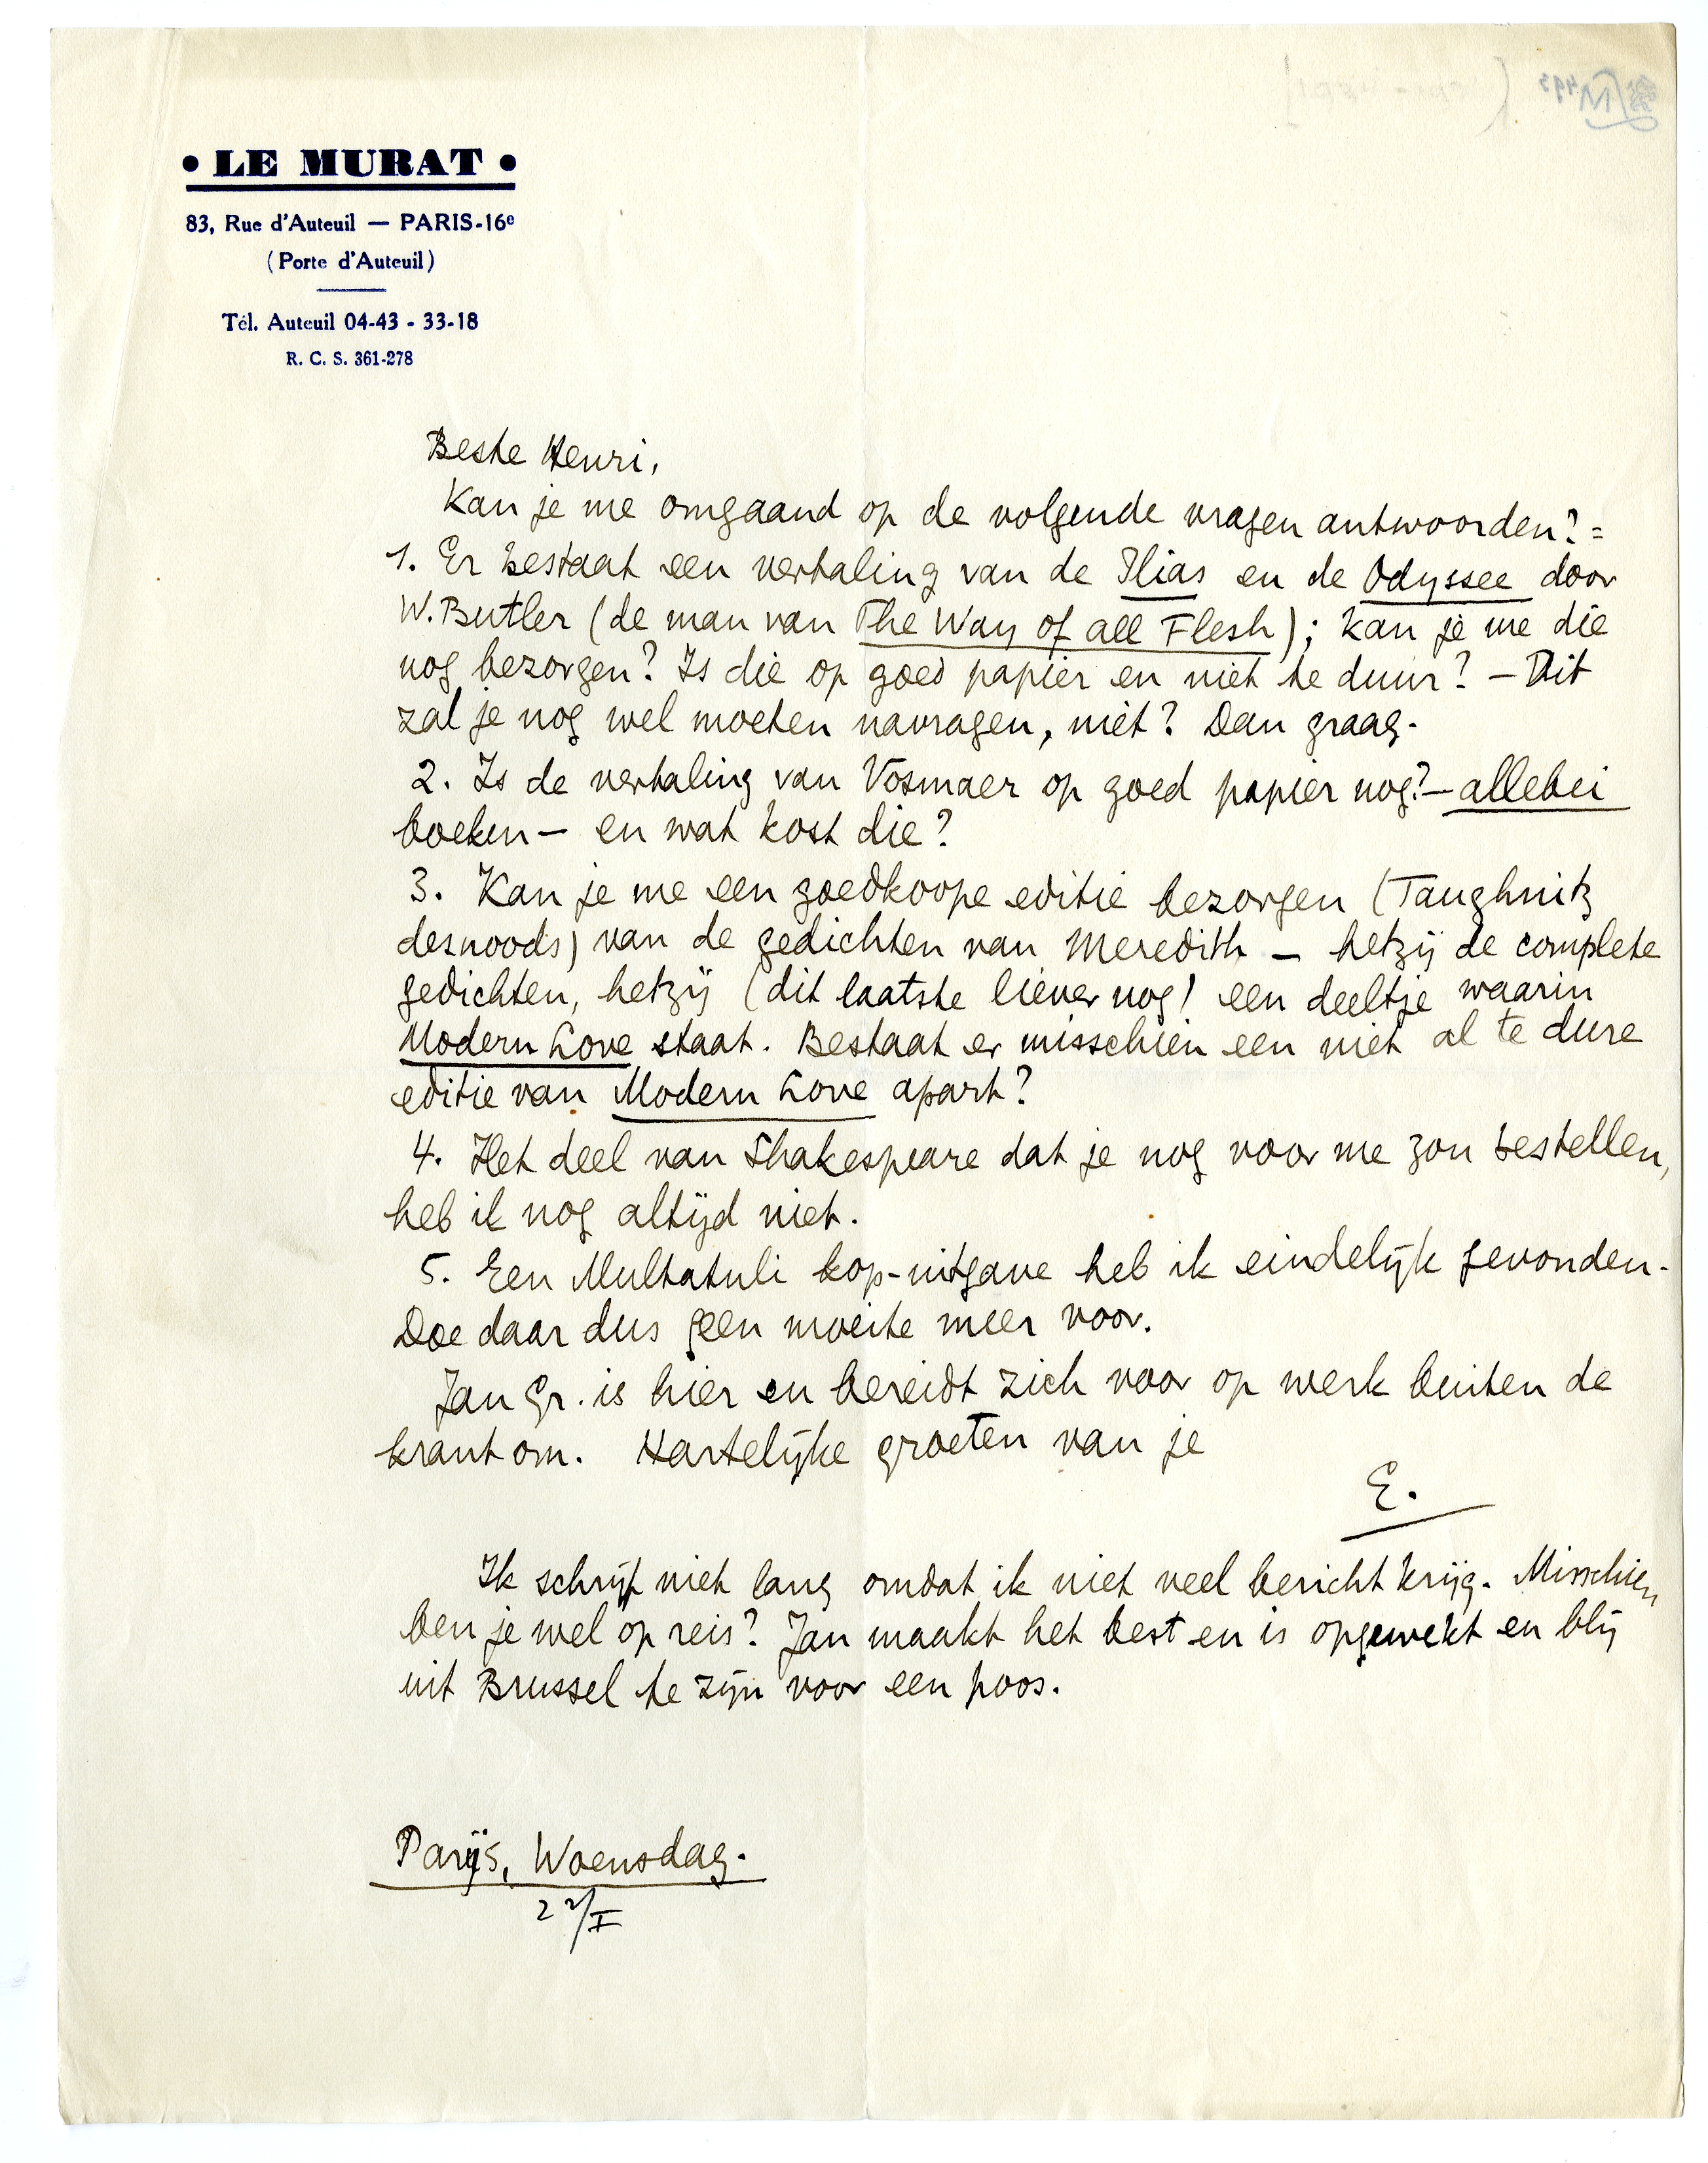 • LE MURAT •
83, Rue d'Auteuil — PARIS-16e
(Porte d'Auteuil)
Tél. Auteuil 04-43 - 33-18
R. C. S. 361-278
Beste Henri,
Kan je me omgaand op de volgende vragen antwoorden? =
1. Er bestaat een vertaling van de Ilias en de Odyssee door
W. Butler (de man van The Way of all Flesh); kan je me die
nog bezorgen? Is die op goed papier en niet te duur? — Dit
zal je nog wel moeten navragen, niet? Dan graag.
2. Is de vertaling van Vosmaer op goed papier nog? — allebei
boeken — en wat kost die?
3. Kan je me een goedkoope editie bezorgen (Tauchnitz
desnoods) van de gedichten van Meredith — hetzij de complete
gedichten, hetzij (dit laatste liever nog) een deeltje waarin
Modern Love staat. Bestaat er misschien een niet al te dure
editie van Modern Love apart?
4. Het deel van Shakespeare dat je nog voor me zou bestellen,
heb ik nog altijd niet.
5. Een Multatuli kop-uitgave heb ik eindelijk gevonden.
Doe daar dus geen moeite meer voor.
Jan Gr. is hier en bereidt zich voor op werk buiten de
krant om. Hartelijke groeten van je
E.
Ik schrijf niet lang omdat ik niet veel bericht krijg. Misschien
ben je wel op reis? Jan maakt het best en is opgewekt en blij
uit Brussel te zijn voor een poos.
Parijs, Woensdag.
22/I